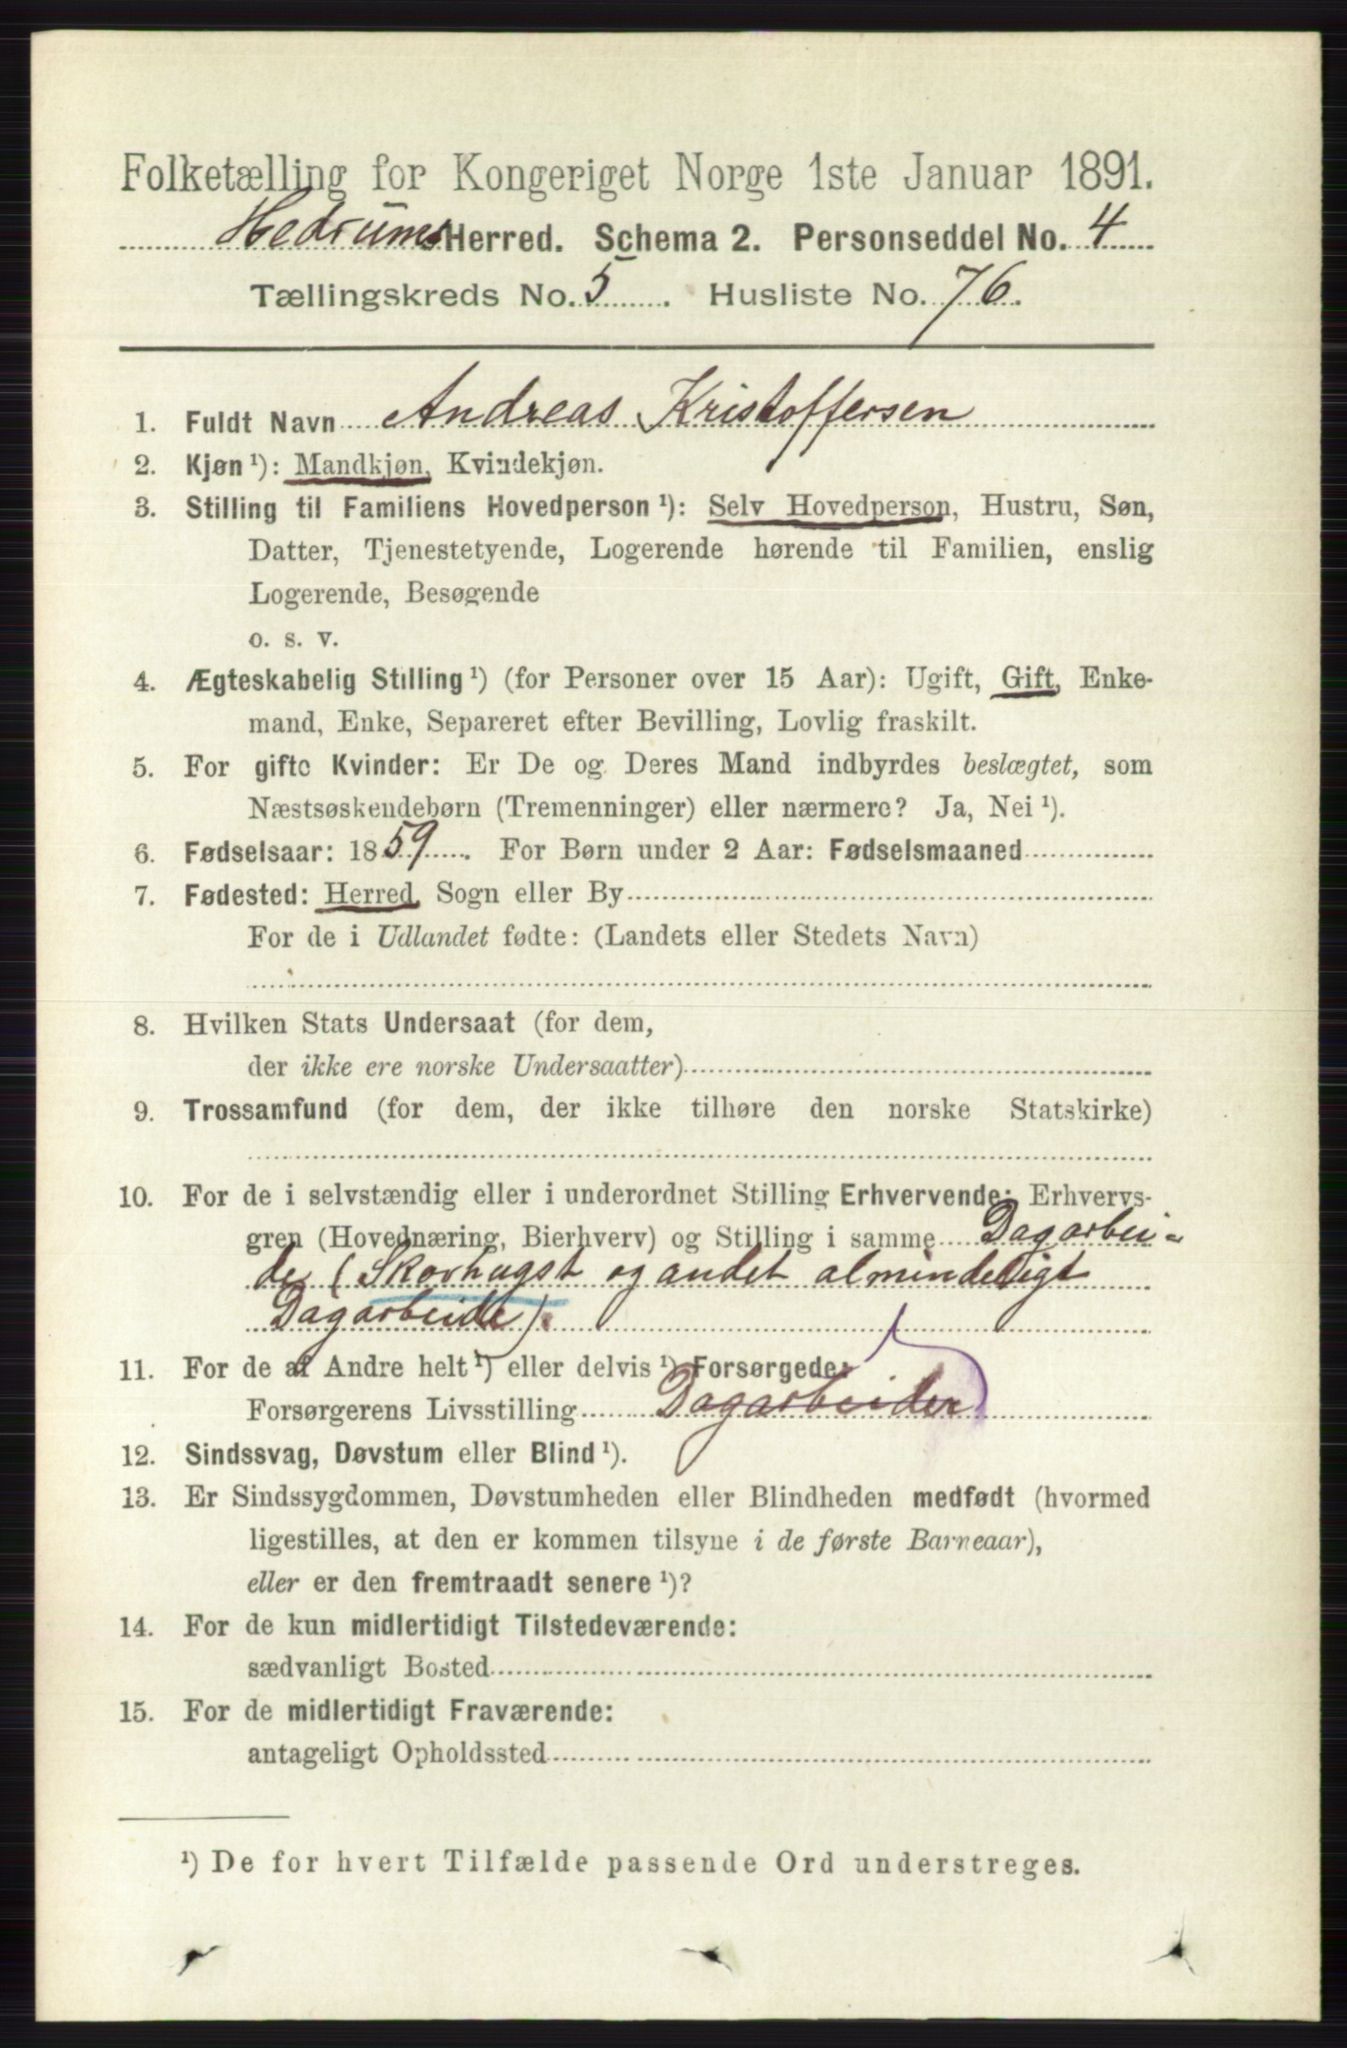 Folketælling for Kongeriget Norge 1ste Januar 1891.
Hedrums Herred. Schema 2. Personseddel No. 4
Tællingskreds No. 5. Husliste No. 76.
1. Fuldt Navn Andreas Kristoffersen
2. Kjøn¹): Mandkjøn, Kvindekjøn.
3. Stilling til Familiens Hovedperson¹): Selv Hovedperson, Hustru, Søn,
Datter, Tjenestetyende, Logerende hørende til Familien, enslig
Logerende, Besøgende
o. s. v.
4. Ægteskabelig Stilling¹) (for Personer over 15 Aar): Ugift, Gift, Enke-
mand, Enke, Separeret efter Bevilling, Lovlig fraskilt.
5. For gifte Kvinder: Er De og Deres Mand indbyrdes beslægtet, som
Næstsøskendebørn (Tremenninger) eller nærmere? Ja, Nei¹).
6. Fødselsaar: 1859. For Børn under 2 Aar: Fødselsmaaned
7. Fødested: Herred, Sogn eller By
For de i Udlandet fødte: (Landets eller Stedets Navn)
8. Hvilken Stats Undersaat (for dem,
der ikke ere norske Undersaatter)
9. Trossamfund (for dem, der ikke tilhøre den norske Statskirke)
10. For de i selvstændig eller i underordnet Stilling Erhvervende: Erhvervs-
gren (Hovednæring, Bierhverv) og Stilling i samme Dagarbei-
der (Skovhugst og andet almindeligt
Dagarbeide).
11. For de af Andre helt¹) eller delvis¹) Forsørgede:
Forsørgerens Livsstilling Dagarbeider
12. Sindssvag, Døvstum eller Blind¹).
13. Er Sindssygdommen, Døvstumheden eller Blindheden medfødt (hvormed
ligestilles, at den er kommen tilsyne i de første Barneaar),
eller er den fremtraadt senere¹)?
14. For de kun midlertidigt Tilstedeværende:
sædvanligt Bosted
15. For de midlertidigt Fraværende:
antageligt Opholdssted
¹) De for hvert Tilfælde passende Ord understreges.